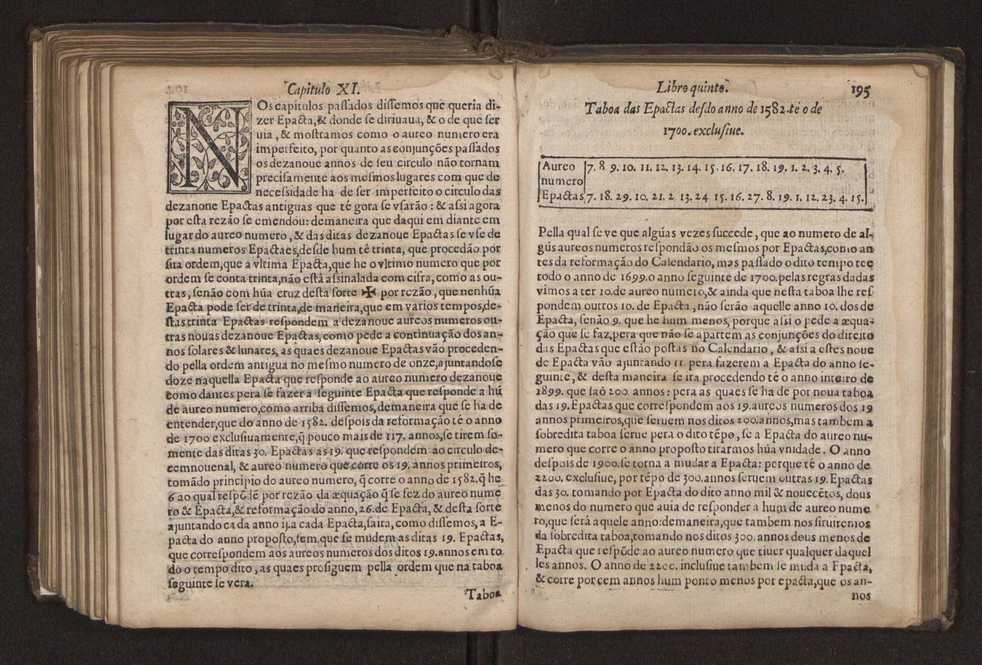 Capitulo XI.
NOs capitulos passados dissemos que queria di-
zer Epacta, & donde se diriuaua, & o de que ser
uia, & mostramos como o aureo numero era
imperfeito, por quanto as conjunções passados
os dezanoue annos de seu circulo não tornam
precisamente aos mesmos lugares com que de
necessidade ha de ser imperfeito o circulo das
dezanone Epactas antiguas que té gora se vsarão: & assi agora
por esta rezão se emendou: demaneira que daqui em diante em
lugar do aureo numero, & das ditas dezanoue Epactas se vse de
trinta numeros Epactaes, desde hum té trinta, que procedão por
sua ordem, que a vltima Epacta, que he o vltimo numero que por
ordem se conta trinta, não está assinalada com cifra, como as ou-
tras, senão com hũa cruz desta sorte ✠ por rezão, que nenhũa
Epacta pode ser de trinta, de maneira, que em varios tempos, de-
stas trinta Epactas respondem a dezanoue aureos numeros ou-
tras nouas dezanoue Epactas, como pede a continuação dos an-
nos solares & lunares, as quaes dezanoue Epactas vão proceden-
do pella ordem antigua no mesmo numero de onze, ajuntandose
doze naquella Epacta que responde ao aureo numero dezanoue
como dantes pera se fazer a seguinte Epacta que responde a hũ
de aureo numero, como arriba dissemos, demaneira que se ha de
entender, que do anno de 1582. despois da reformação té o anno
de 1700 exclusiuamente, q̃ pouco mais de 117. annos, se tirem so-
mente das ditas 30. Epactas as 19. que respondem ao circulo de-
cemnouenal, & aureo numero que corre os 19. annos primeiros,
tomãdo principio do aureo numero, q̃ corre o anno de 1582. q̃ he
6 ao qual respõde por rezão da æquação q̃ se fez do aureo nume
ro & Epacta, & reformação do anno, 26. de Epacta, & desta sorte
ajuntando cada anno 11. a cada Epacta, saira, como dissemos, a E-
pacta do anno proposto, sem que se mudem as ditas 19. Epactas,
que correspondem aos aureos numeros dos ditos 19. annos em to
do o tempo dito, as quaes prosiguem pella ordem que na taboa
seguinte se vera.
Taboa
Libro quinto.
195
Taboa das Epactas desdo anno de 1582. té o de
1700. exclusiue.
Aureo numero 7. 8 9. 10. 11. 12. 13. 14 15. 16. 17. 18. 19. 1. 2. 3. 4. 5.
Epactas 7. 18. 29. 10. 21. 2 13. 24 15. 16. 27. 8. 19. 1. 12. 23. 4. 15.
Pella qual se ve que algũas vezes succede, que ao numero de al-
gũs aureos numeros respondão os mesmos por Epactas, como an
tes da reformação do Calendario, mas passado o dito tempo tee
todo o anno de 1699. o anno seguinte de 1700. pelas regras dadas
vimos a ter 10. de aureo numero, & ainda que nesta taboa lhe res
pondem outros 10. de Epacta, não serão aquelle anno 10. dos de
Epacta, senão 9. que he hum menos, porque assi o pede a æqua-
ção que se faz, pera que não se apartem as conjunções do direito
das Epactas que estão postas no Calendario, & assi a estes noue
de Epacta vão ajuntando 11. pera fazerem a Epacta do anno se-
guinte, & desta maneira se ira procedendo té o anno inteiro de
1899. que saõ 200. annos: pera as quaes se ha de por noua taboa
das 19. Epactas que correspondem aos 19. aureos numeros dos 19
annos primeiros, que seruem nos ditos 200. annos, mas tambem a
sobredita taboa serue pera o dito tẽpo, se a Epacta do aureo nu-
mero que corre o anno proposto tirarmos hũa vnidade. O anno
despois de 1900. se torna a mudar a Epacta: perque té o anno de
2200. exclusiue, por tẽpo de 300. annos seruem outras 19. Epactas
das 30. tomando por Epacta do dito anno mil & nouecẽtos, dous
menos do numero que auia de responder a hum de aureo nume
ro, que será aquele anno: demaneira, que tambem nos siruiremos
da sobredita taboa, tomando nos ditos 300. annos deus menos de
Epacta que respõde ao aureo numero que tiuer qualquer daquel
les annos. O anno de 2200. inclusiue tambem se muda a Epacta,
& corre por cem annos hum ponto menos por epacta, que os an-
nos